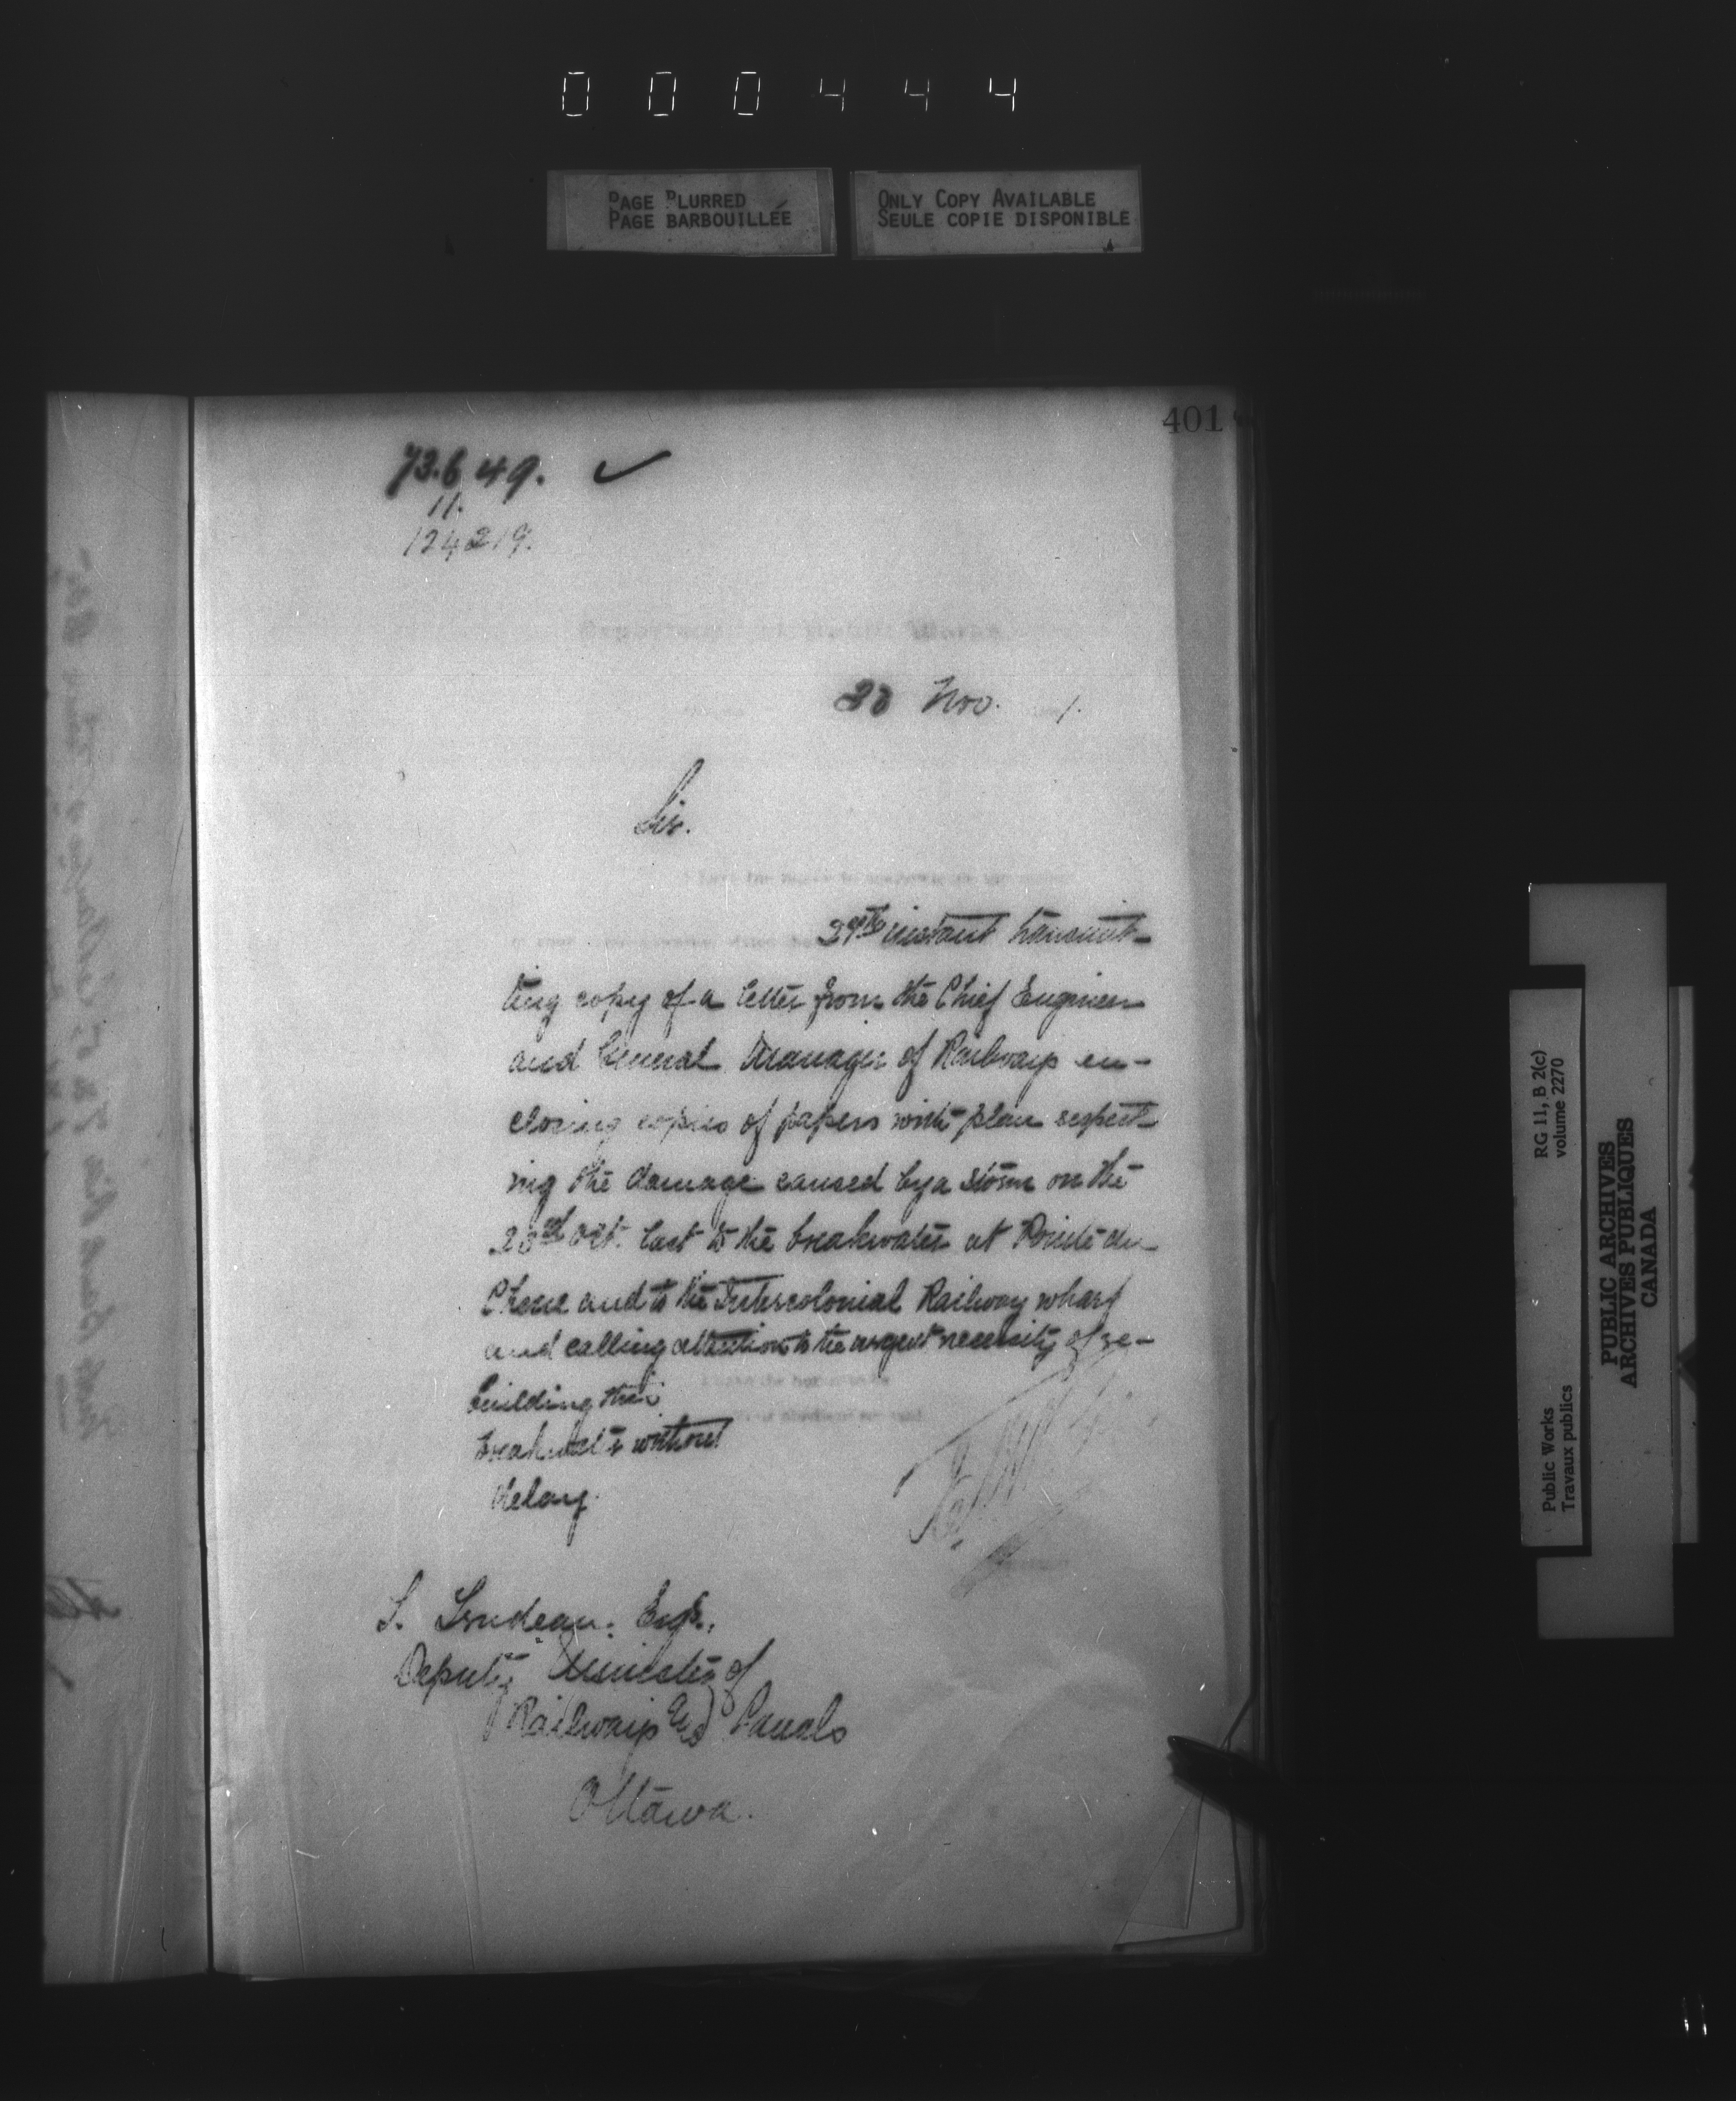 000444
PAGE BLURRED
PAGE BARBOUILLÉE
ONLY COPY AVAILABLE
SEULE COPIE DISPONIBLE
401
73.649.
11.
124219.
Department of Public Works
Nov. 1.
Sir.
I have the honor to acknowledge the receipt
instant transmit-
ting copy of a letter from the Chief Engineer
and General Manager of Railways en-
closing copies of papers with plan respect-
ing the damage caused by a storm on the
Oct. last to the breakwater at Pointe du
Chene and to the Intercolonial Railway wharf
and calling attention to the urgent necessity of re-
building the
breakwater without
delay.
I have the honor to be
Your obedient servant
Trudeau. Esq.,
Deputy Minister of
Railways & Canals
Ottawa.
RG 11, B 2(c)
volume 2270
Public Works
Travaux publics
PUBLIC ARCHIVES
ARCHIVES PUBLIQUES
CANADA